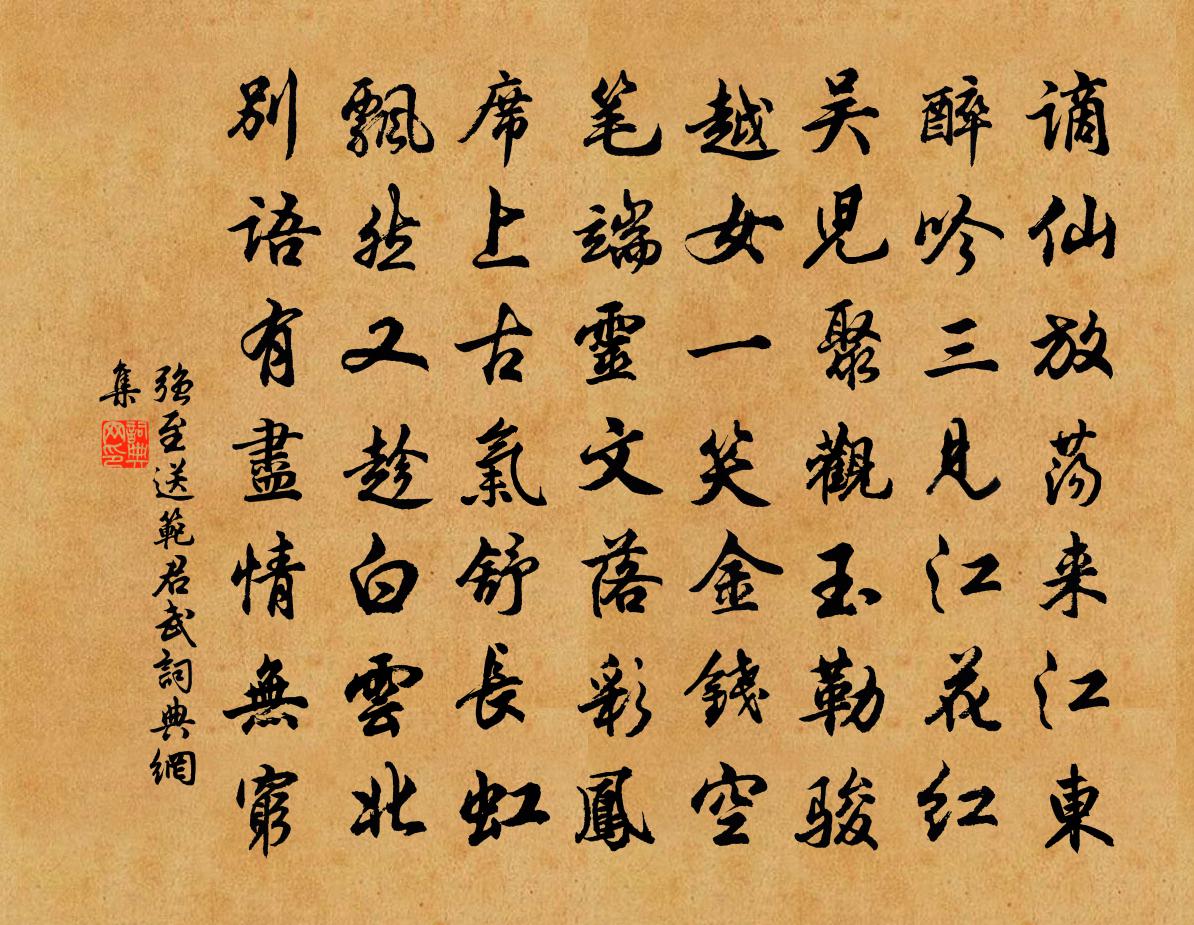 谪仙放荡来江東
醉吟三見江花红
吴児聚觀玉勒骏
越女一笑金錢空
笔端靈文落彩鳳
席上古氣舒長虹
飄然又趁白雲北
别語有盡情無窮
强至送範君武詞典網
集
詞典
网印